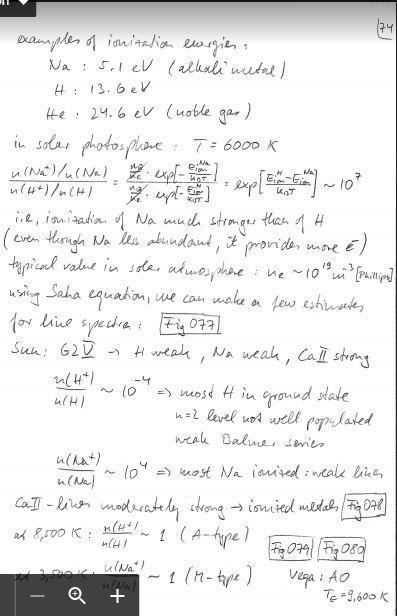 74
examples of ionization energies:
Na : 5.1 eV (alkali metal)
H : 13.6 eV
He : 24.6 eV (noble gas)
in solar photosphere : T = 6000 K
n(Na⁺)/n(Na) / n(H⁺)/n(H) = exp[-E_ion^Na/k_BT] / exp[-E_ion^H/k_BT] = exp[(E_ion^H - E_ion^Na)/k_BT] ~ 10⁷
i.e., ionization of Na much stronger than of H
(even though Na less abundant, it provides more e⁻)
typical value in solar atmosphere : n_e ~ 10¹⁹ m⁻³ [Phillips]
using Saha equation, we can make a few estimates
for line spectra : Fig 077
Sun: G2V → H weak, Na weak, CaII strong
n(H⁺)/n(H) ~ 10⁻⁴ => most H in ground state
n=2 level not well populated
weak Balmer series
n(Na⁺)/n(Na) ~ 10⁴ => most Na ionized : weak lines
CaII-lines moderately strong → ionized metals Fig 078
at 8,500 K : n(H⁺)/n(H) ~ 1 (A-type) Fig 079 Fig 080
at 3,500 K : n(Na⁺)/n(Na) ~ 1 (M-type) Vega : A0
T_E = 9,600 K